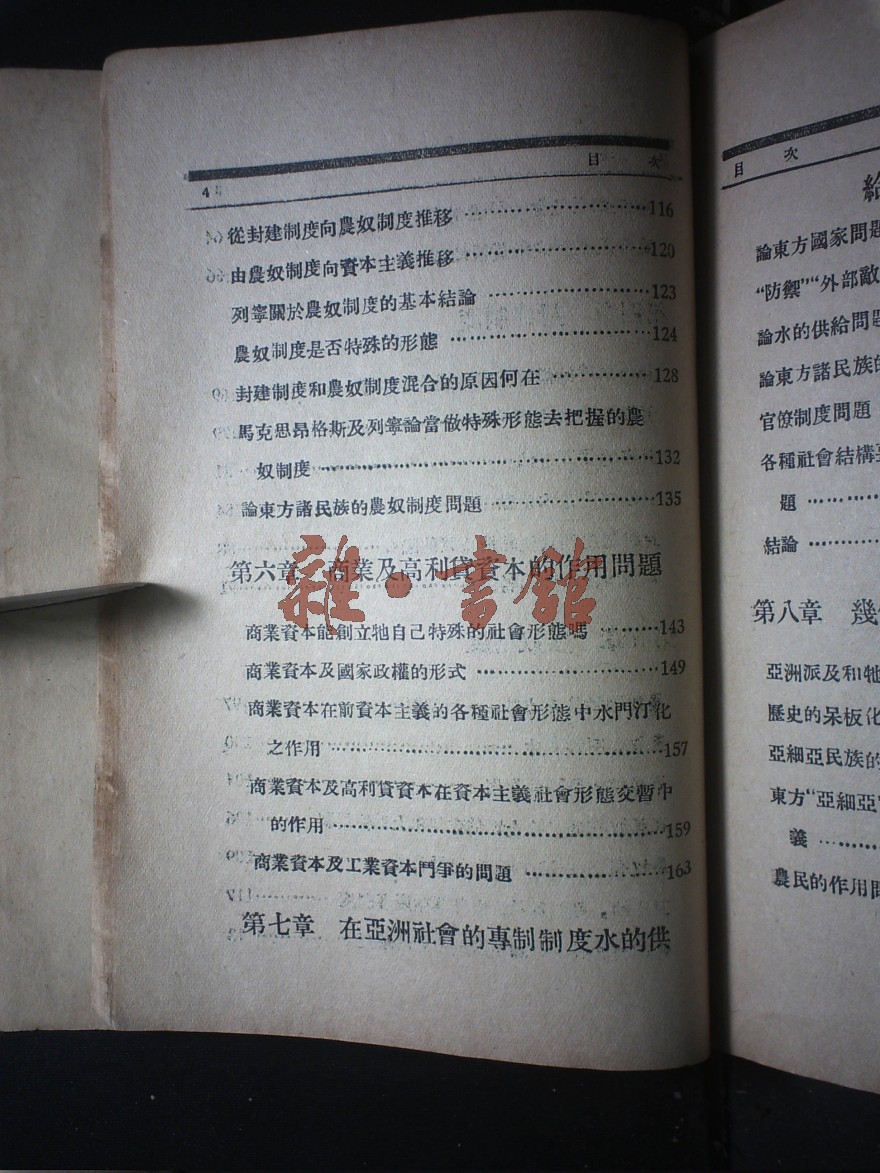 目 次
4
從封建制度向農奴制度推移 ………………116
由農奴制度向資本主義推移 ………………120
列寧關於農奴制度的基本結論 ………………123
農奴制度是否特殊的形態 ………………124
封建制度和農奴制度混合的原因何在 ………………128
馬克思昂格斯及列寧論當做特殊形態去把握的農
奴制度 ………………132
論東方諸民族的農奴制度問題 ………………135
第六章 商業及高利貸資本的作用問題
雜·書館
商業資本能創立牠自己特殊的社會形態嗎 ………143
商業資本及國家政權的形式 ………………149
商業資本在前資本主義的各種社會形態中水門汀化
之作用 ………………157
商業資本及高利貸資本在資本主義社會形態交暫中
的作用 ………………159
商業資本及工業資本鬥爭的問題 ………………163
第七章 在亞洲社會的專制制度水的供
目 次
給
論東方國家問題
“防禦”“外部敵
論水的供給問題
論東方諸民族的
官僚制度問題
各種社會結構
題 …………
結論 …………
第八章 幾
亞洲派及和牠
歷史的呆板化
亞細亞民族的
東方“亞細亞
義 …………
農民的作用問